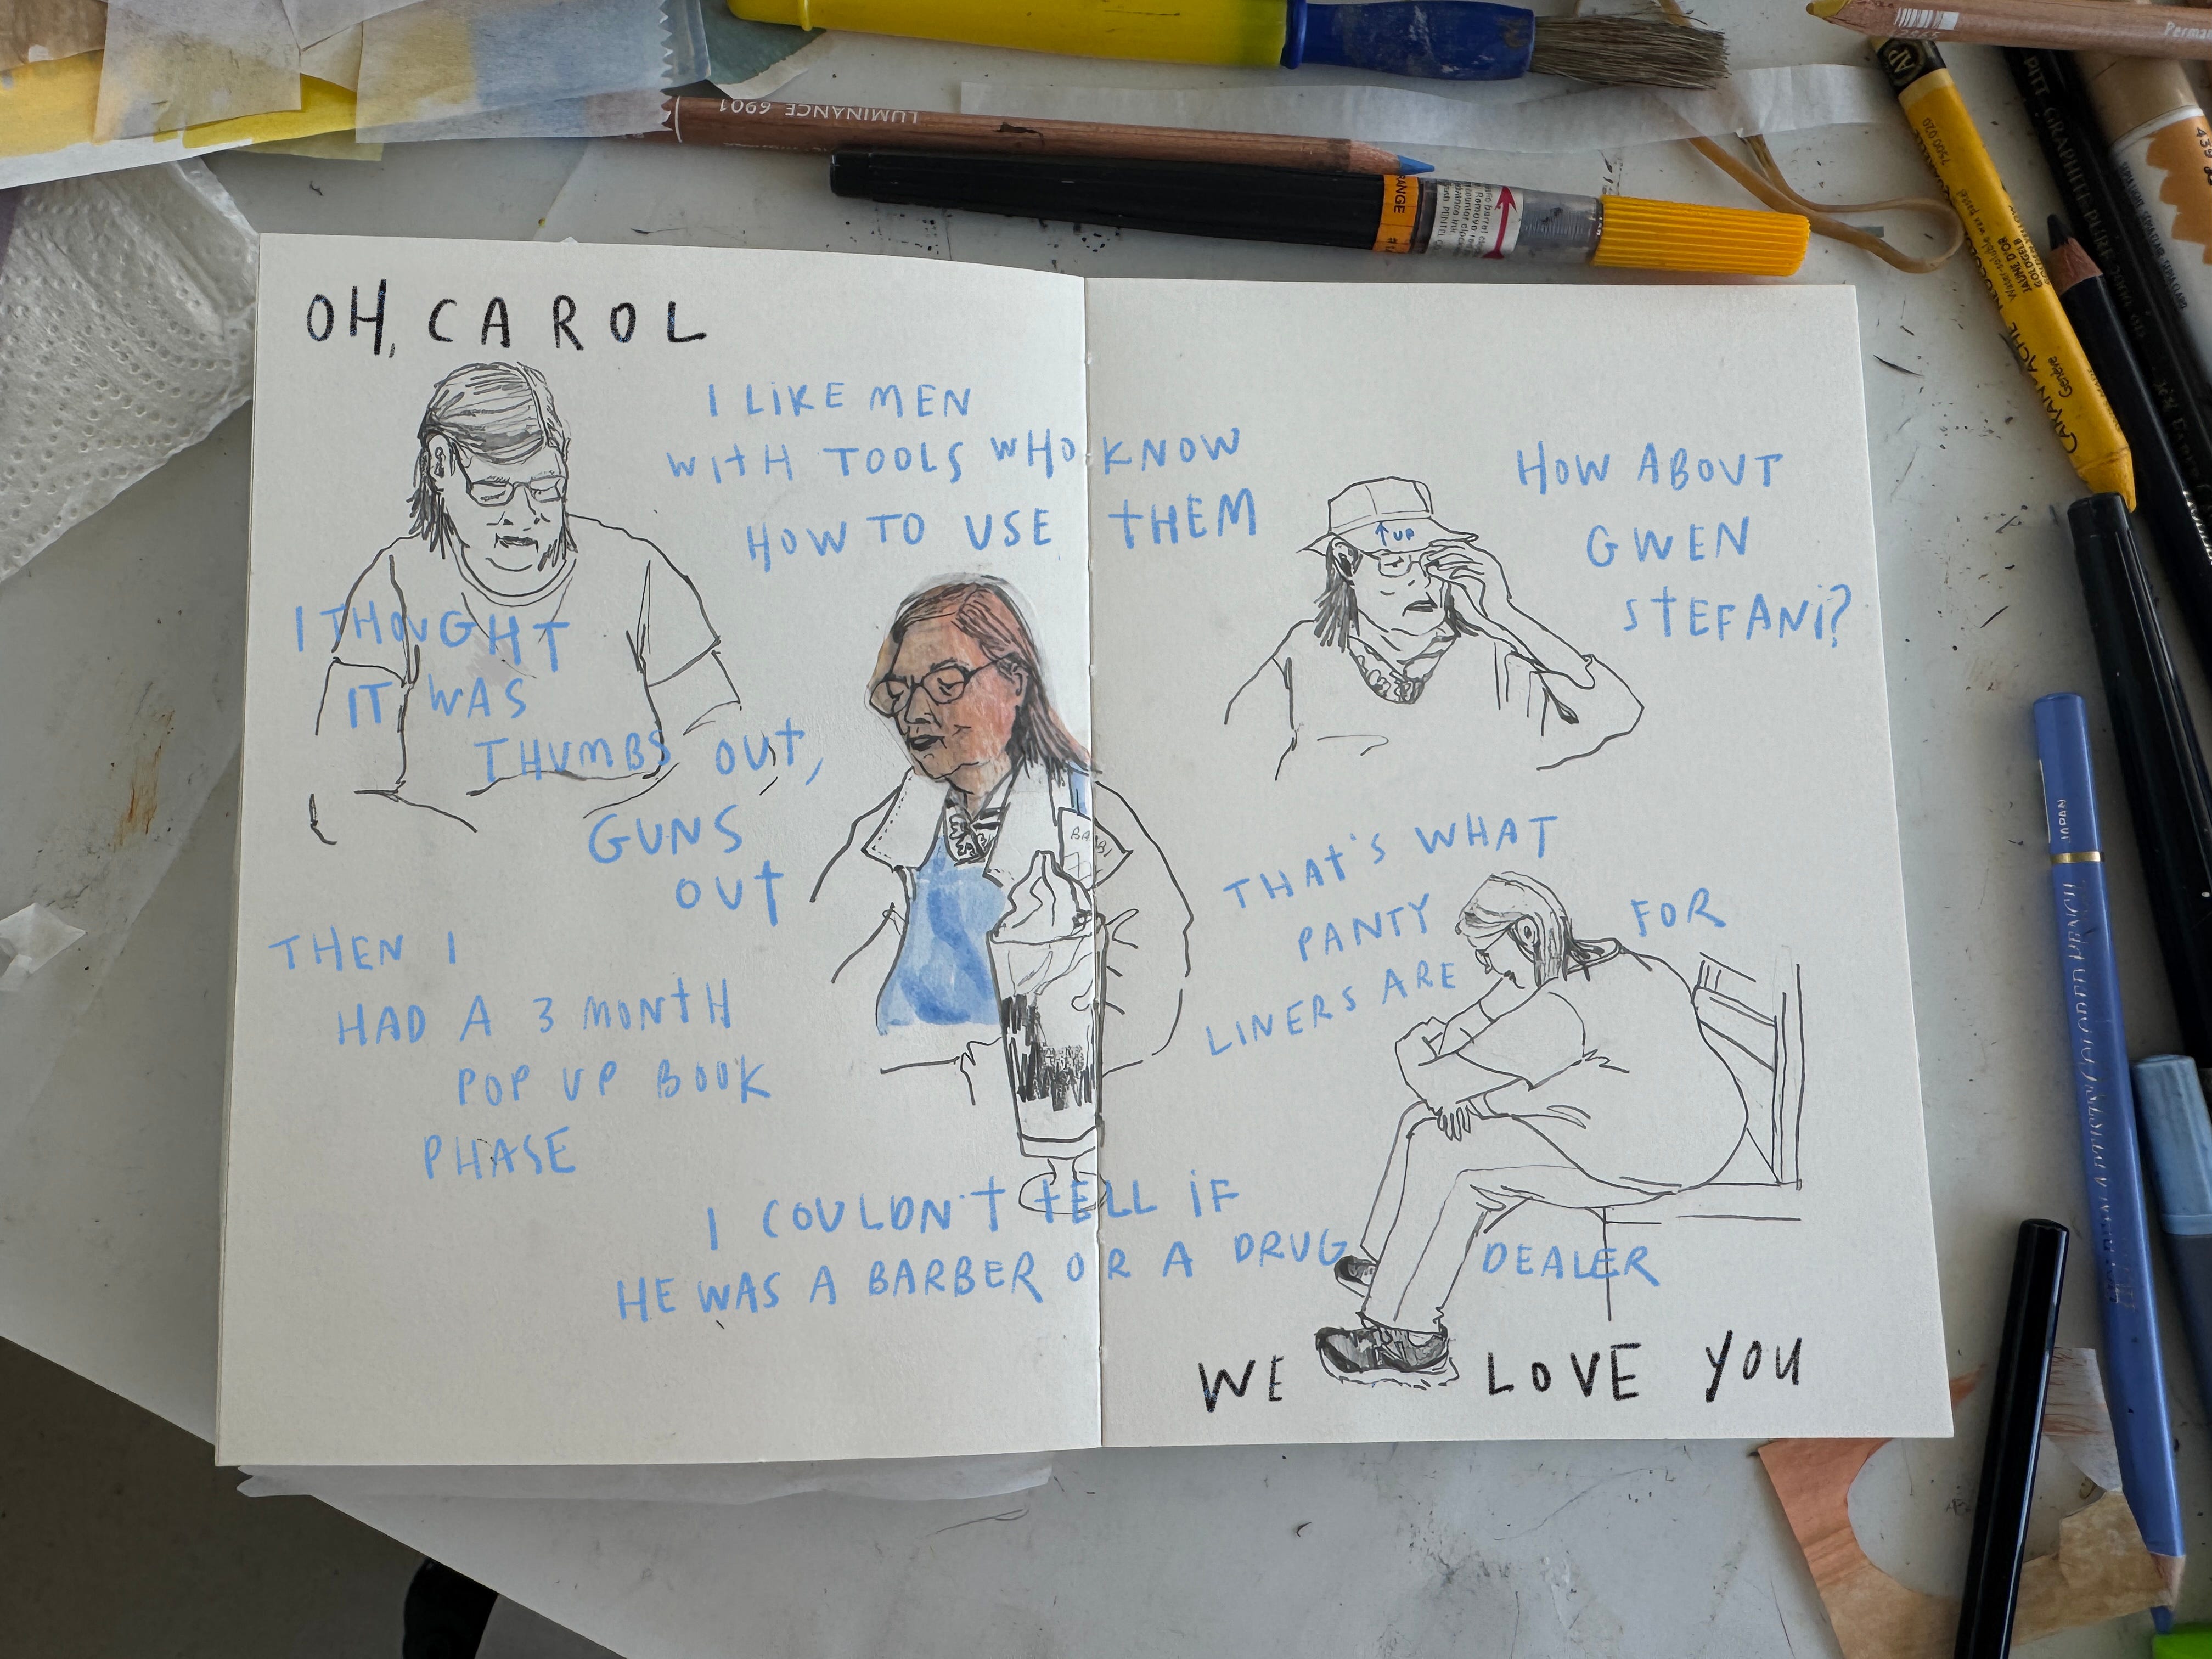 OH, CAROL
I LIKE MEN
WITH TOOLS WHO KNOW
HOW TO USE THEM
I THOUGHT
IT WAS
THUMBS OUT,
GUNS
OUT
THEN I
HAD A 3 MONTH
POP UP BOOK
PHASE
↑ UP
HOW ABOUT
GWEN
STEFANI?
THAT'S WHAT
PANTY
LINERS ARE FOR
I COULDN'T TELL IF
HE WAS A BARBER OR A DRUG DEALER
WE LOVE YOU
LUMINANCE 6901
RANGE
JAPAN
CARAN D'ACHE
Genève
7500.020
JAUNE D'OR
GOLDGELB
AP
PITT GRAPHITE PURE